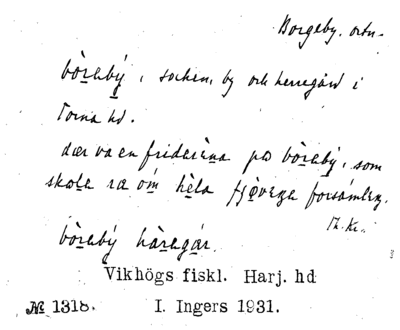 Borgeby. ortn.
bòrebý, socken, by och herregård i
Torna hd.
dær va en frideréna på bòrebý, som
skole ra óm hèla fjòrega forsámleg.
Th. Kr.
bòrebý hàregár.
Vikhögs fiskl. Harj. hd
№ 1318. I. Ingers 1931.